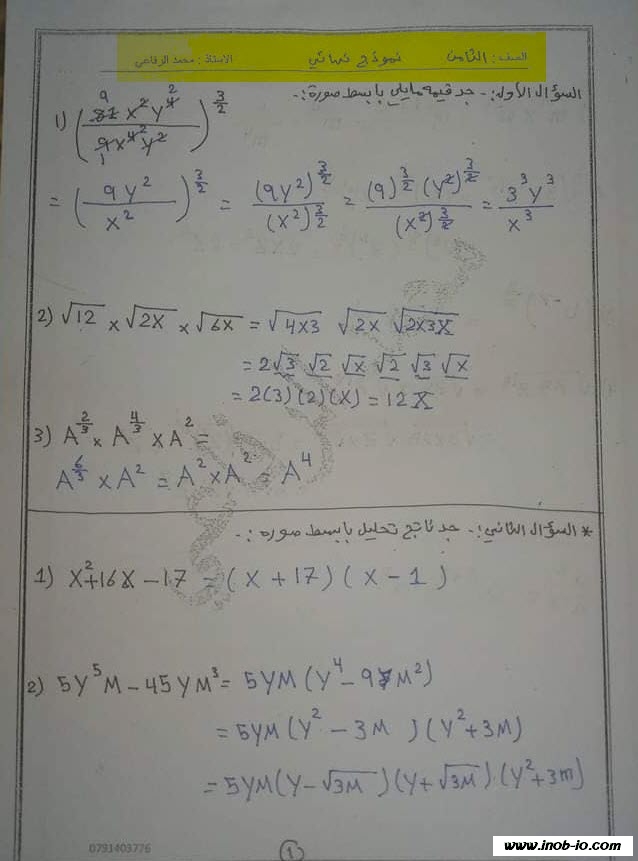 الصف: الثامن نموذج نهائي الاستاذ: محمد الرفاعي
السؤال الأول:- جد قيمة مايلي بابسط صورة:-
1) (81x²y⁴ / 9x⁴y²)^(3/2)
= (9y² / x²)^(3/2) = (9y²)^(3/2) / (x²)^(3/2) = (9)^(3/2) (y²)^(3/2) / (x²)^(3/2) = 3³y³ / x³
2) √12 × √2x × √6x = √4x3 √2x √2x3x
= 2√3 √2 √x √2 √3 √x
= 2(3)(2)(x) = 12x
3) A^(2/3) × A^(4/3) × A² =
A^(6/3) × A² = A² × A² = A⁴
* السؤال الثاني:- جد ناتج تحليل بابسط صوره:-
1) x²+16x-17 = (x+17)(x-1)
2) 5y⁵M - 45yM³ = 5yM(y⁴-9M²)
= 5yM(y² - 3M)(y²+3M)
= 5yM(y-√3M)(y+√3M)(y²+3m)
0791403776
1
www.inob-io.com